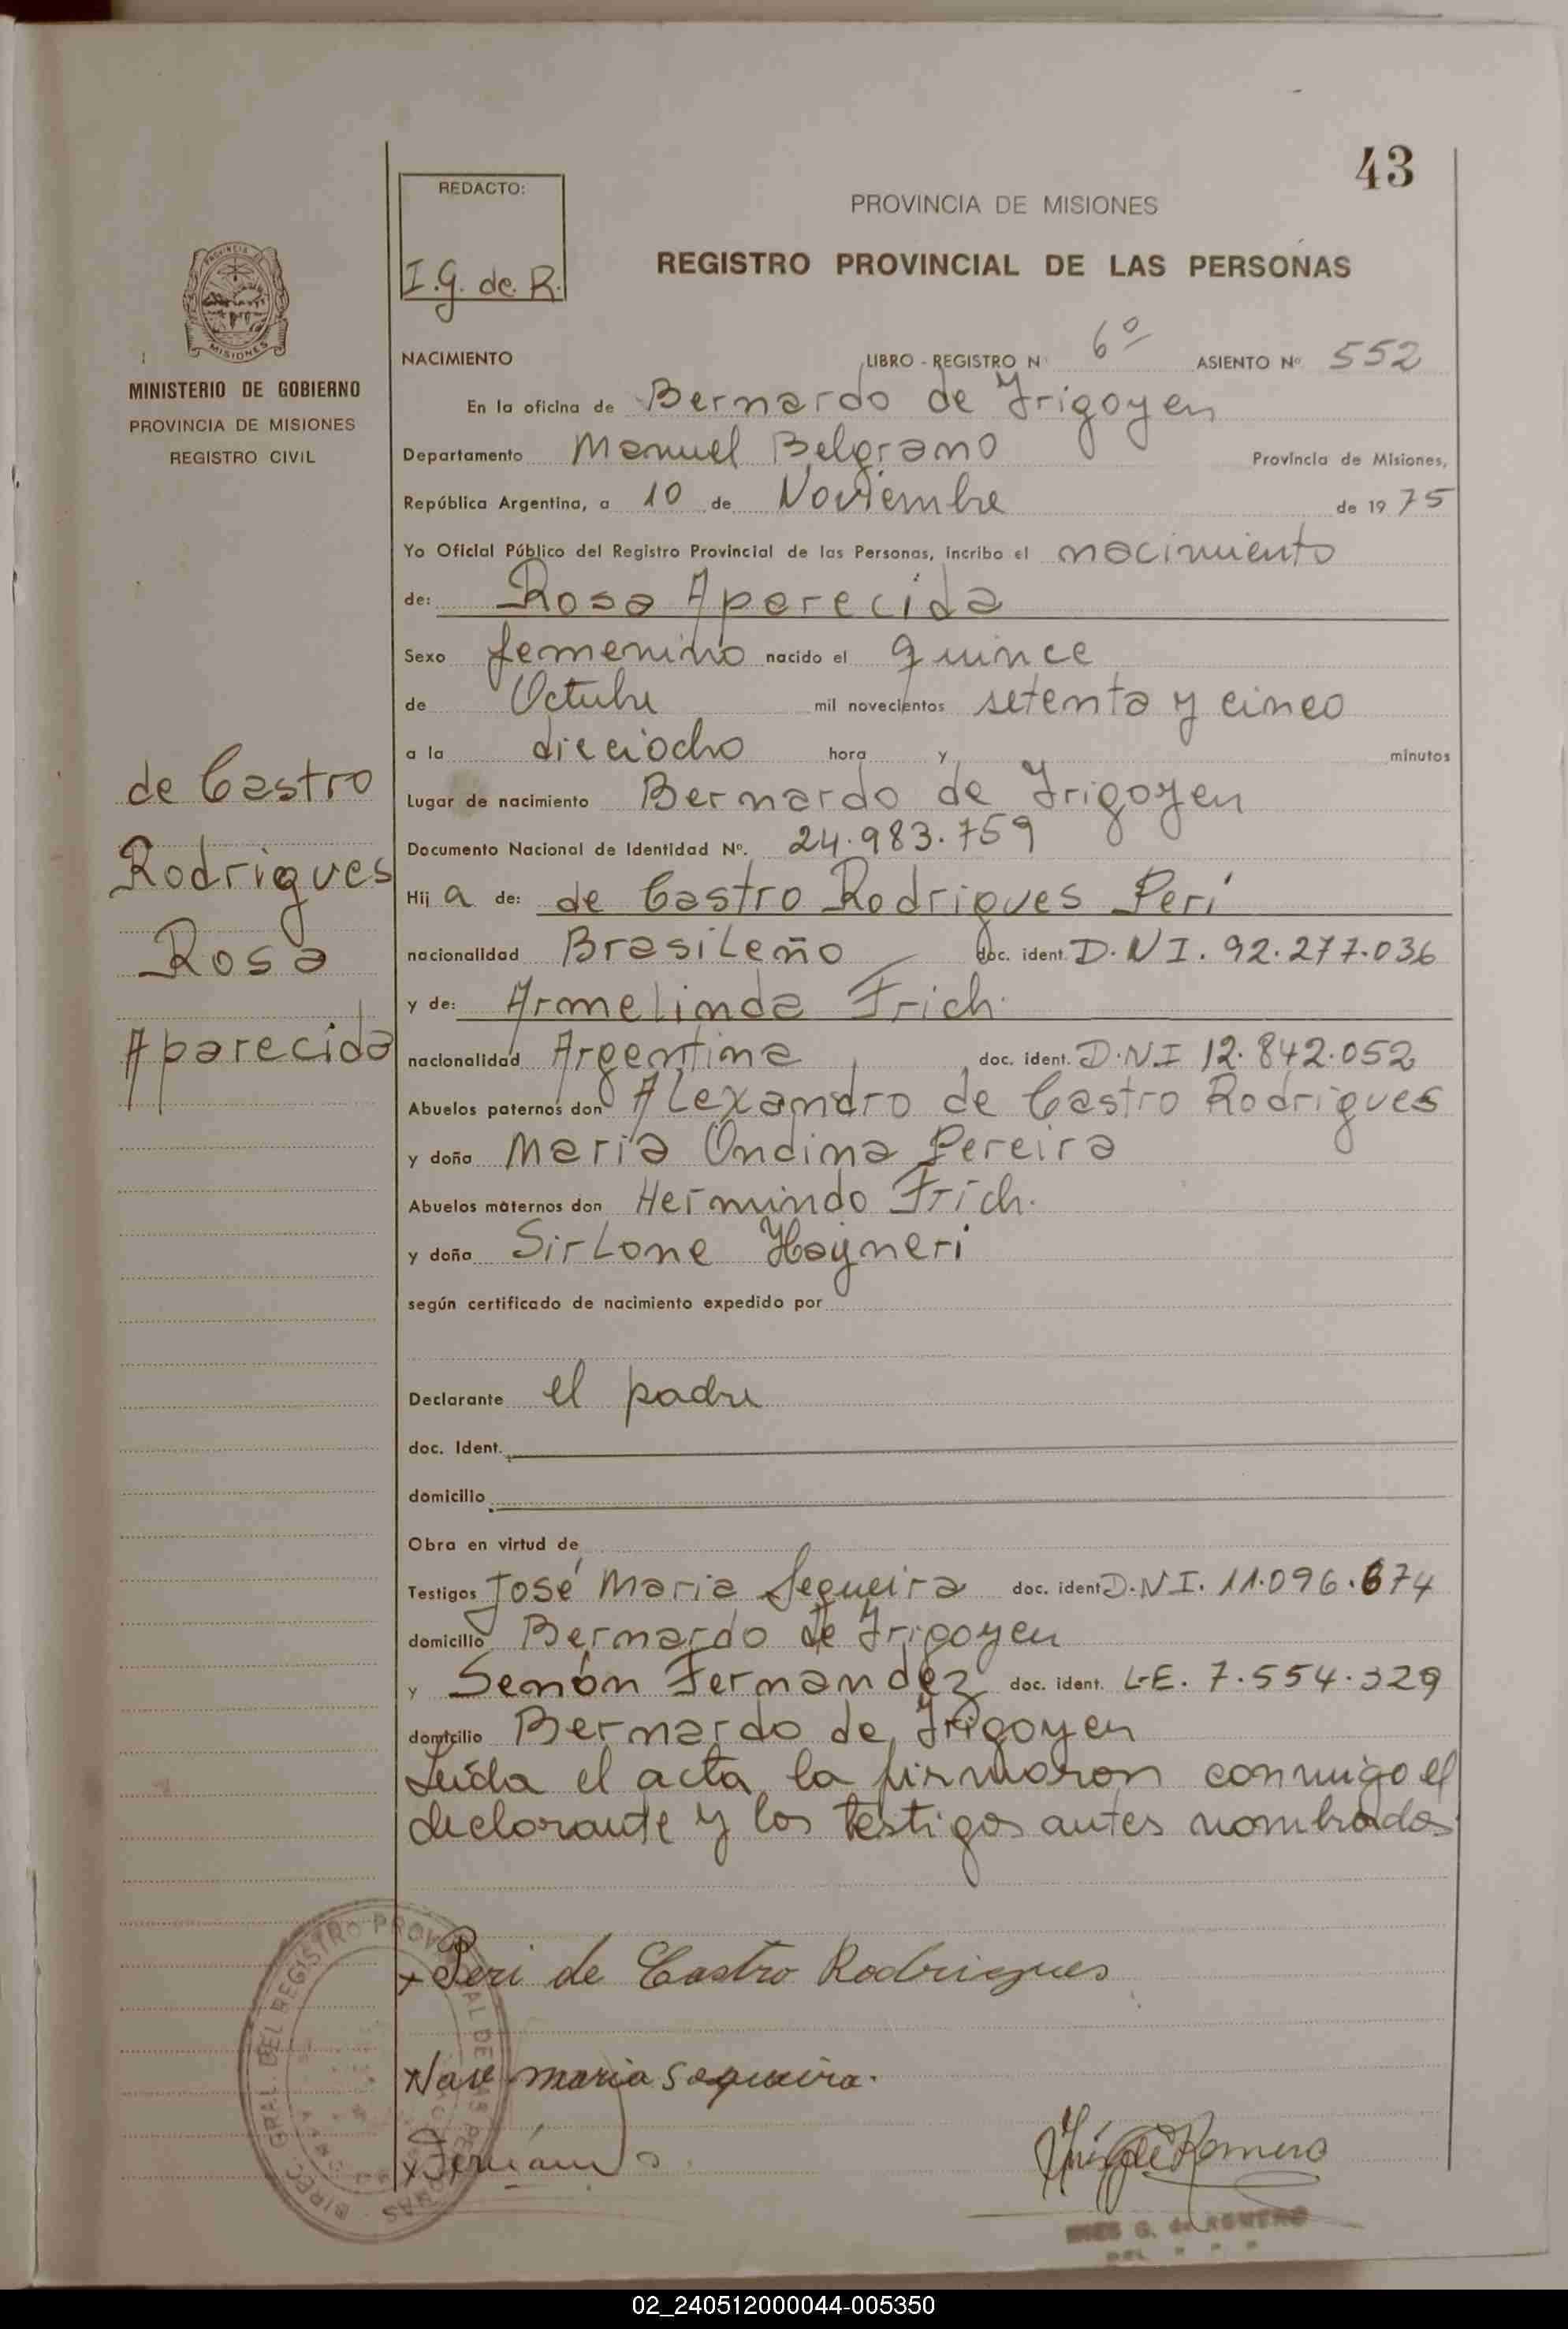 43
REDACTO:
I.G. de R.
PROVINCIA DE MISIONES
REGISTRO PROVINCIAL DE LAS PERSONAS
MISIONES
MINISTERIO DE GOBIERNO
PROVINCIA DE MISIONES
REGISTRO CIVIL
de Castro
Rodrigues
Rosa
Aparecida
NACIMIENTO LIBRO - REGISTRO N° 6º ASIENTO Nº 552
En la oficina de Bernardo de Irigoyen
Departamento Manuel Belgrano Provincia de Misiones,
República Argentina, a 10 de Noviembre de 19 75
Yo Oficial Público del Registro Provincial de las Personas, incribo el nacimiento
de: Rosa Aparecida
Sexo femenino nacido el quince
de Octubre mil novecientos setenta y cinco
a la dieciocho hora y minutos
Lugar de nacimiento Bernardo de Irigoyen
Documento Nacional de Identidad Nº. 24.983.759
Hij a de: de Castro Rodrigues Peri
nacionalidad Brasileño doc. ident. D.N I. 92.277.036
y de: Armelinda Frich.
nacionalidad Argentina doc. ident. D.N.I 12.842.052
Abuelos paternos don Alexandro de Castro Rodrigues
y doña Maria Ondina Pereira
Abuelos maternos don Hermindo Frich.
y doña Sirlone Hayneri
según certificado de nacimiento expedido por
Declarante el padre
doc. Ident.
domicilio
Obra en virtud de
Testigos José Maria Sequeira doc. ident D.N I. 11.096.674
domicilio Bernardo de Irigoyen
y Senón Fernandez doc. ident. L.E. 7.554.329
domicilio Bernardo de Irigoyen
Leída el acta la firmaron conmigo el
declarante y los testigos antes nombrados.
x Peri de Castro Rodrigues
maria sequeira.
DIREC. GRAL. DEL REGISTRO PROVINCIAL DE LAS PERSONAS
INES G. de ROMERO
02_240512000044-005350